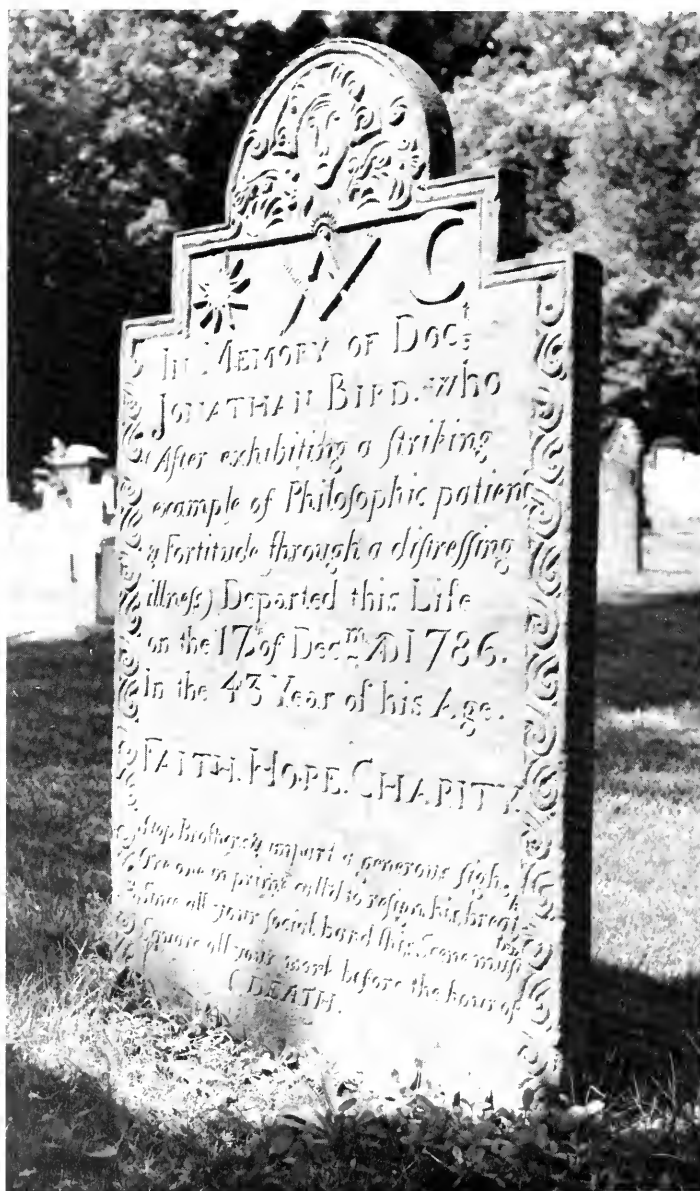 In Memory of Doc.t
Jonathan Bird. who
(After exhibiting a ſtriking
example of Philoſophic patienc
& Fortitude through a diſtreſſing
illneſs) Departed this Life
on the 17.t of Dec.m AD 1786.
in the 43 Year of his Age.
Faith. Hope. Charity.
Stop Brothers impart a generous ſigh,
One in prime call'd to reſign his breath
Since all your ſocial band this Scene muſt try
Square all your work before the hour of
(DEATH.